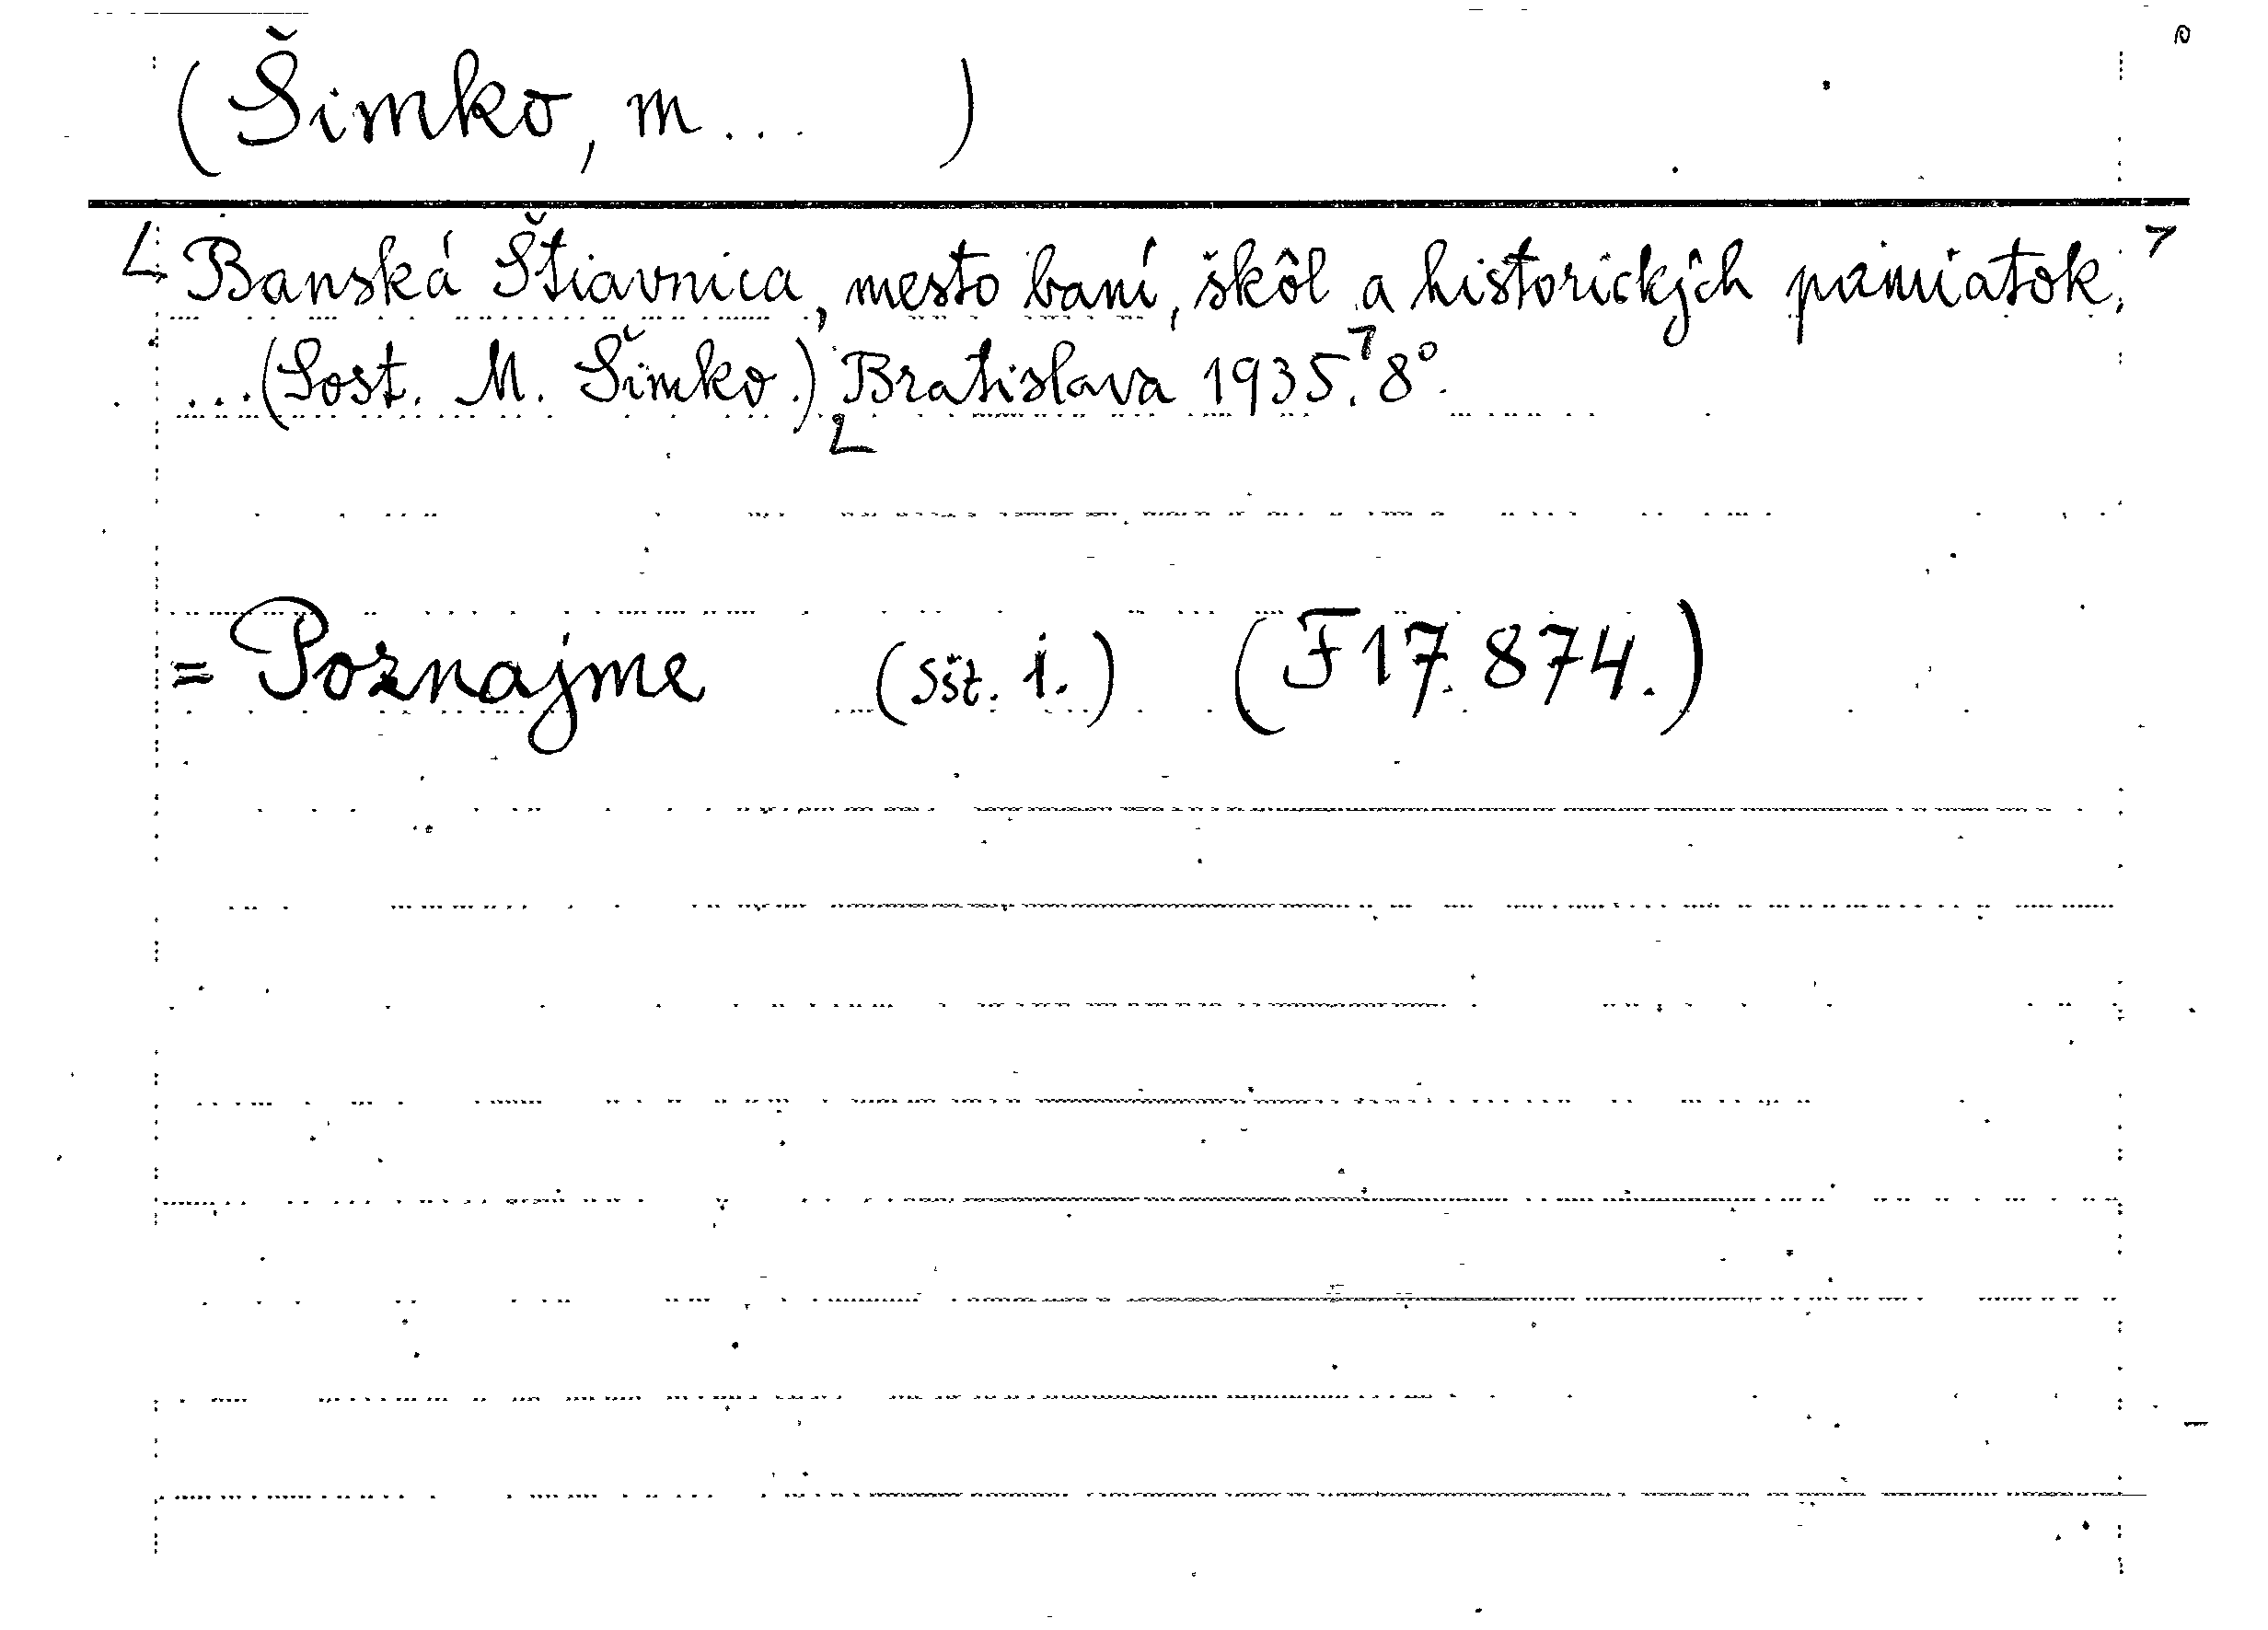 (Šimko, M... )
Banská Štiavnica, mesto baní, škôl a historických pamiatok.
...(Sost. M. Šimko.) Bratislava 1935. 8°.
= Poznajme (sšt. 1.) (F 17.874.)